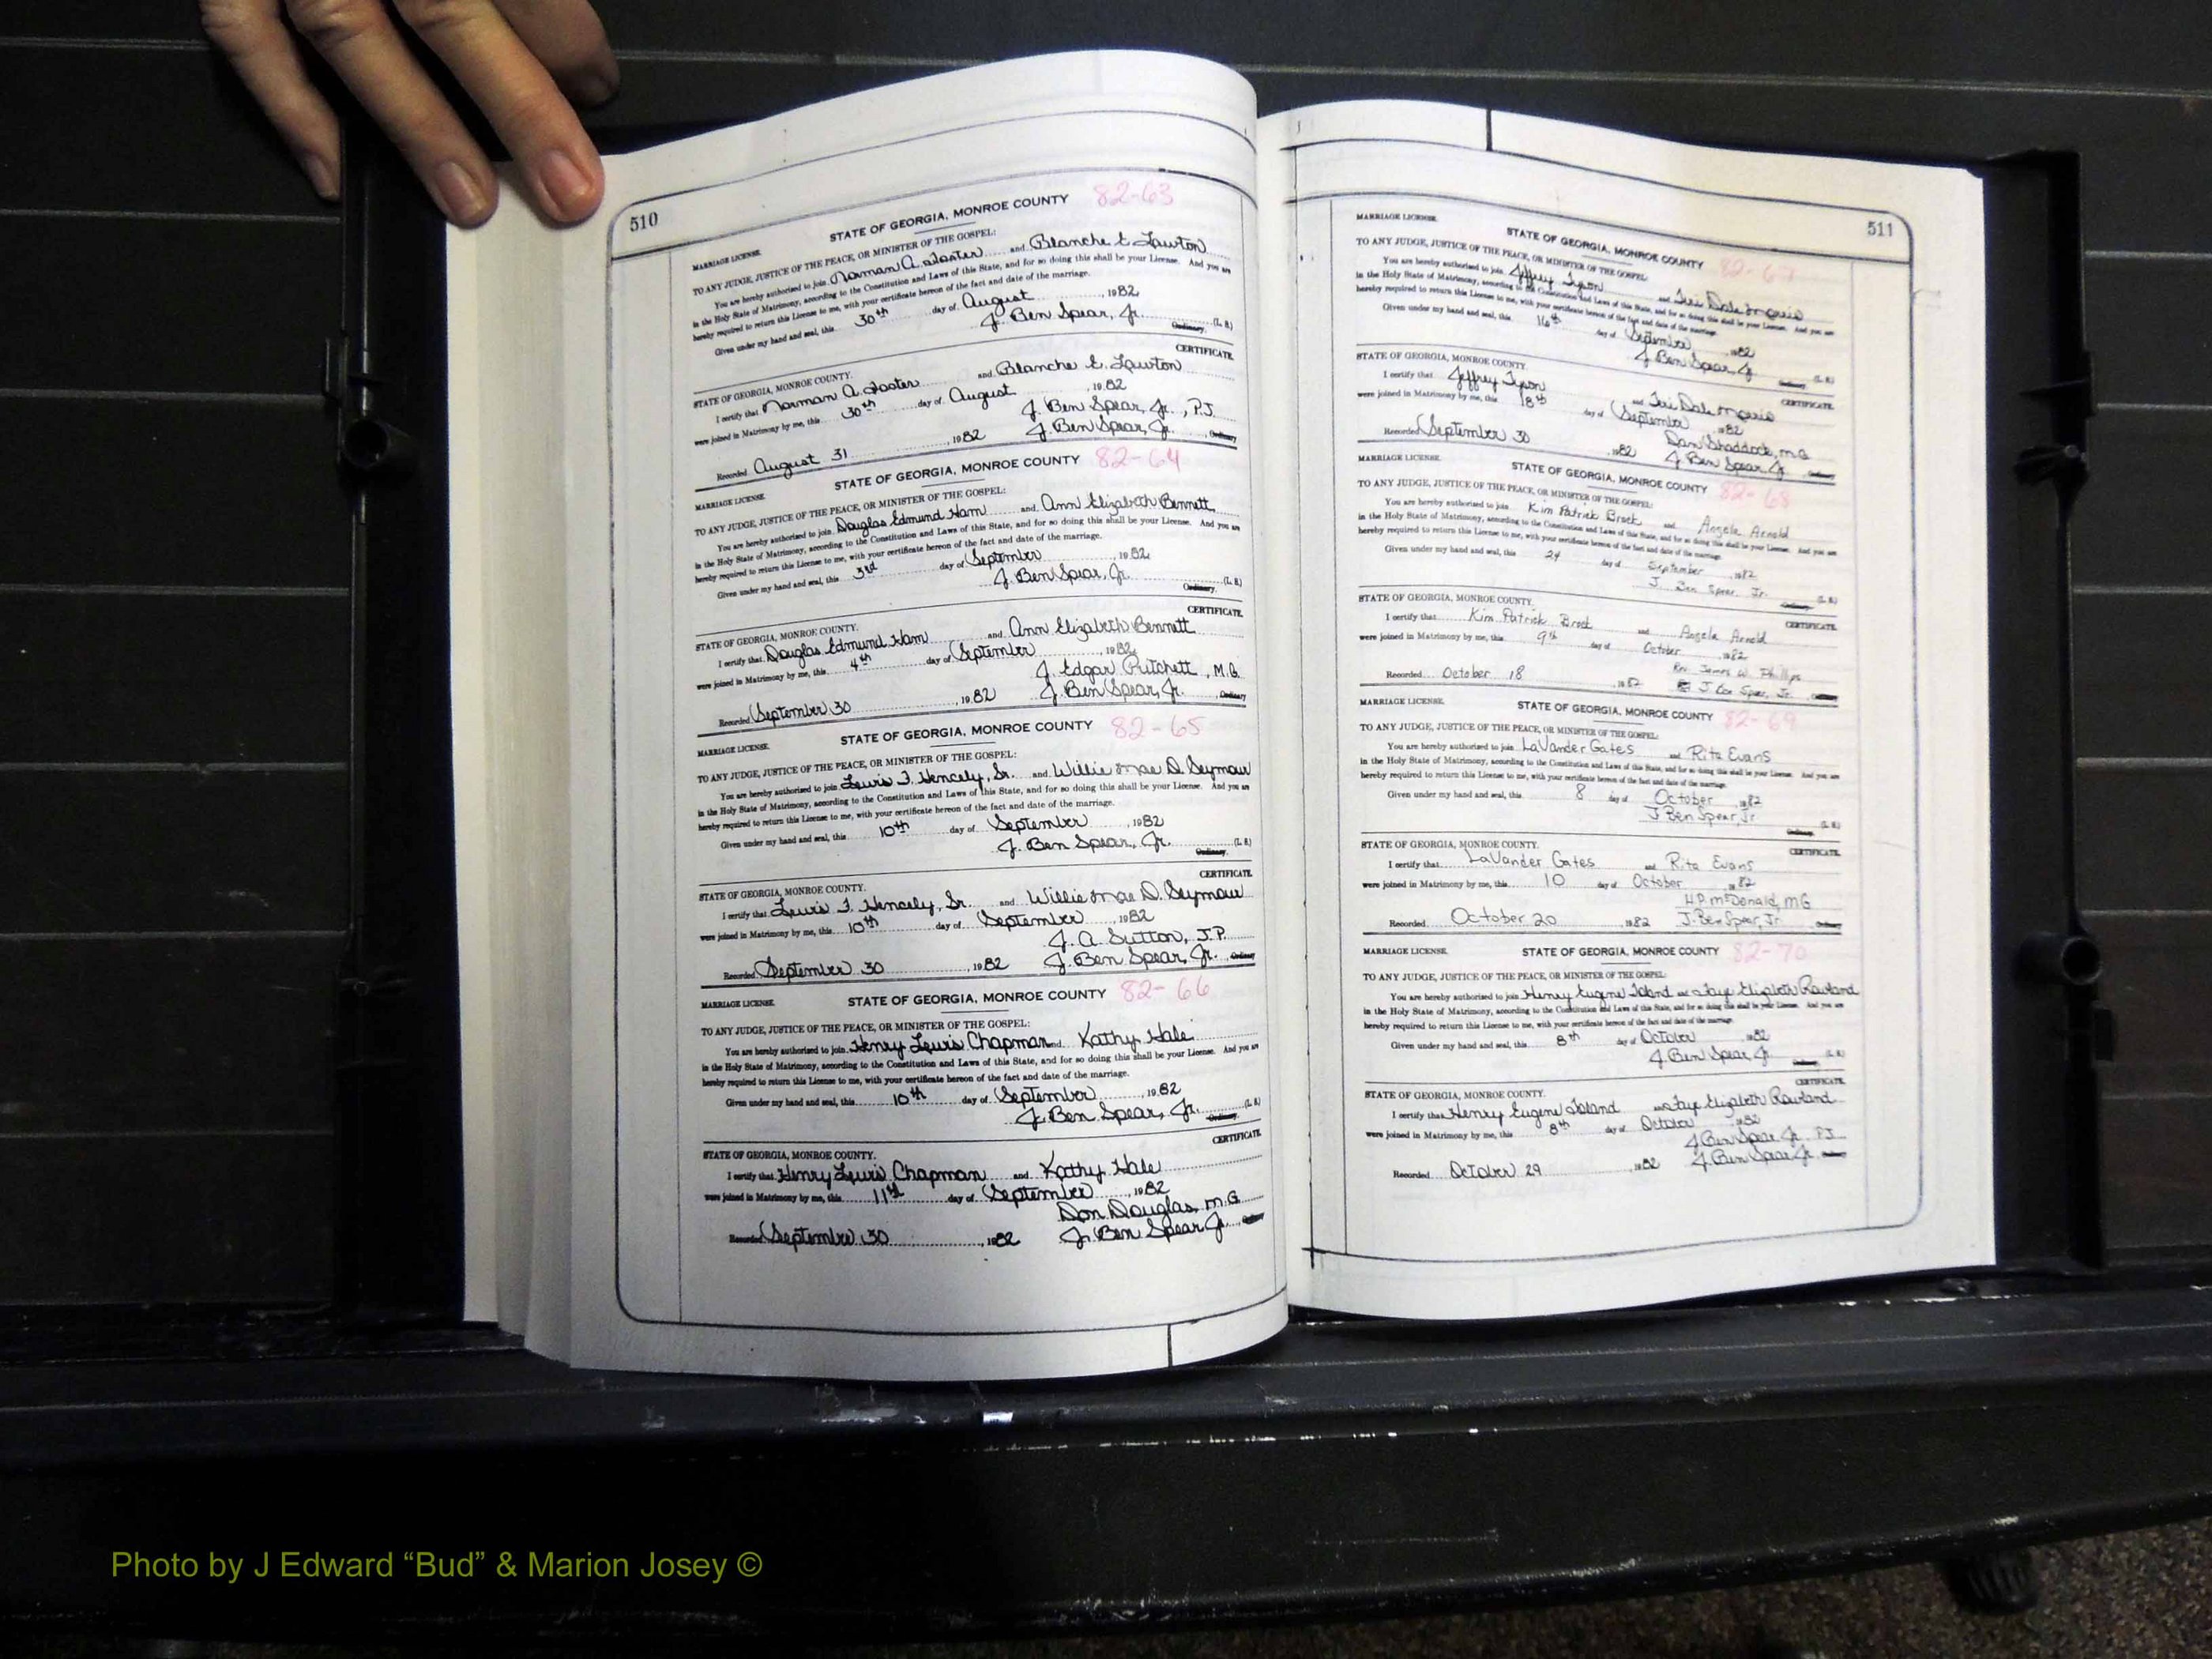 510
STATE OF GEORGIA, MONROE COUNTY 82-63
MARRIAGE LICENSE.
TO ANY JUDGE, JUSTICE OF THE PEACE, OR MINISTER OF THE GOSPEL:
You are hereby authorized to join Norman A. Foster and Blanche E. Lawton
in the Holy State of Matrimony, according to the Constitution and Laws of this State, and for so doing this shall be your License. And you are
hereby required to return this License to me, with your certificate hereon of the fact and date of the marriage.
Given under my hand and seal, this 30th day of August, 1982
J. Ben Spear, Jr. (L. S.)
Ordinary.
CERTIFICATE.
STATE OF GEORGIA, MONROE COUNTY.
I certify that Norman A. Foster and Blanche E. Lawton
were joined in Matrimony by me, this 30th day of August, 1982
J. Ben Spear, Jr., P.J.
Recorded August 31, 1982 J. Ben Spear, Jr., Ordinary
STATE OF GEORGIA, MONROE COUNTY 82-64
MARRIAGE LICENSE.
TO ANY JUDGE, JUSTICE OF THE PEACE, OR MINISTER OF THE GOSPEL:
You are hereby authorized to join Douglas Edmund Ham and Ann Elizabeth Bennett
in the Holy State of Matrimony, according to the Constitution and Laws of this State, and for so doing this shall be your License. And you are
hereby required to return this License to me, with your certificate hereon of the fact and date of the marriage.
Given under my hand and seal, this 3rd day of September, 1982
J. Ben Spear, Jr. (L. S.)
Ordinary.
CERTIFICATE.
STATE OF GEORGIA, MONROE COUNTY.
I certify that Douglas Edmund Ham and Ann Elizabeth Bennett
were joined in Matrimony by me, this 4th day of September, 1982
J. Edgar Pritchett, M.G.
Recorded September 30, 1982 J. Ben Spear, Jr., Ordinary
STATE OF GEORGIA, MONROE COUNTY 82-65
MARRIAGE LICENSE.
TO ANY JUDGE, JUSTICE OF THE PEACE, OR MINISTER OF THE GOSPEL:
You are hereby authorized to join Lewis F. Hencely, Sr. and Willie Mae D. Seymour
in the Holy State of Matrimony, according to the Constitution and Laws of this State, and for so doing this shall be your License. And you are
hereby required to return this License to me, with your certificate hereon of the fact and date of the marriage.
Given under my hand and seal, this 10th day of September, 1982
J. Ben Spear, Jr. (L. S.)
Ordinary.
CERTIFICATE.
STATE OF GEORGIA, MONROE COUNTY.
I certify that Lewis F. Hencely, Sr. and Willie Mae D. Seymour
were joined in Matrimony by me, this 10th day of September, 1982
J. A. Sutton, J.P.
Recorded September 30, 1982 J. Ben Spear, Jr., Ordinary
MARRIAGE LICENSE. STATE OF GEORGIA, MONROE COUNTY 82-66
TO ANY JUDGE, JUSTICE OF THE PEACE, OR MINISTER OF THE GOSPEL:
You are hereby authorized to join Henry Lewis Chapman and Kathy Hale
in the Holy State of Matrimony, according to the Constitution and Laws of this State, and for so doing this shall be your License. And you are
hereby required to return this License to me, with your certificate hereon of the fact and date of the marriage.
Given under my hand and seal, this 10th day of September, 1982
J. Ben Spear, Jr. (L. S.)
Ordinary.
CERTIFICATE.
STATE OF GEORGIA, MONROE COUNTY.
I certify that Henry Lewis Chapman and Kathy Hale
were joined in Matrimony by me, this 11th day of September, 1982
Don Douglas, M.G.
Recorded September 30, 1982 J. Ben Spear Jr., Ordinary
511
MARRIAGE LICENSE. STATE OF GEORGIA, MONROE COUNTY 82-67
TO ANY JUDGE, JUSTICE OF THE PEACE, OR MINISTER OF THE GOSPEL:
You are hereby authorized to join Jeffrey Tyson and Teri Dale Morris
in the Holy State of Matrimony, according to the Constitution and Laws of this State, and for so doing this shall be your License. And you are
hereby required to return this License to me, with your certificate hereon of the fact and date of the marriage.
Given under my hand and seal, this 16th day of September, 1982
J. Ben Spear, Jr. (L. S.)
Ordinary.
CERTIFICATE.
STATE OF GEORGIA, MONROE COUNTY.
I certify that Jeffrey Tyson and Teri Dale Morris
were joined in Matrimony by me, this 18th day of September, 1982
Dan Shaddock, M.G.
Recorded September 30, 1982 J. Ben Spear Jr., Ordinary
MARRIAGE LICENSE. STATE OF GEORGIA, MONROE COUNTY 82-68
TO ANY JUDGE, JUSTICE OF THE PEACE, OR MINISTER OF THE GOSPEL:
You are hereby authorized to join Kim Patrick Brock and Angela Arnold
in the Holy State of Matrimony, according to the Constitution and Laws of this State, and for so doing this shall be your License. And you are
hereby required to return this License to me, with your certificate hereon of the fact and date of the marriage.
Given under my hand and seal, this 24 day of September, 1982
J. Ben Spear, Jr. (L. S.)
Ordinary.
CERTIFICATE.
STATE OF GEORGIA, MONROE COUNTY.
I certify that Kim Patrick Brock and Angela Arnold
were joined in Matrimony by me, this 9th day of October, 1982
Rev. James W. Phillips
Recorded October 18, 1982 J. Ben Spear, Jr., Ordinary
MARRIAGE LICENSE. STATE OF GEORGIA, MONROE COUNTY 82-69
TO ANY JUDGE, JUSTICE OF THE PEACE, OR MINISTER OF THE GOSPEL:
You are hereby authorized to join LaVander Gates and Rita Evans
in the Holy State of Matrimony, according to the Constitution and Laws of this State, and for so doing this shall be your License. And you are
hereby required to return this License to me, with your certificate hereon of the fact and date of the marriage.
Given under my hand and seal, this 8 day of October, 1982
J Ben Spear, Jr (L. S.)
Ordinary.
CERTIFICATE.
STATE OF GEORGIA, MONROE COUNTY.
I certify that LaVander Gates and Rita Evans
were joined in Matrimony by me, this 10 day of October, 1982
H.P. McDonald, MG
Recorded October 20, 1982 J. Ben Spear, Jr., Ordinary
MARRIAGE LICENSE. STATE OF GEORGIA, MONROE COUNTY 82-70
TO ANY JUDGE, JUSTICE OF THE PEACE, OR MINISTER OF THE GOSPEL:
You are hereby authorized to join Henry Eugene Toland and Faye Elizabeth Rowland
in the Holy State of Matrimony, according to the Constitution and Laws of this State, and for so doing this shall be your License. And you are
hereby required to return this License to me, with your certificate hereon of the fact and date of the marriage.
Given under my hand and seal, this 8th day of October, 1982
J. Ben Spear Jr. (L. S.)
Ordinary.
CERTIFICATE.
STATE OF GEORGIA, MONROE COUNTY.
I certify that Henry Eugene Toland and Faye Elizabeth Rowland
were joined in Matrimony by me, this 8th day of October, 1982
J. Ben Spear Jr. P.J.
Recorded October 29, 1982 J. Ben Spear Jr., Ordinary
Photo by J Edward “Bud” & Marion Josey ©